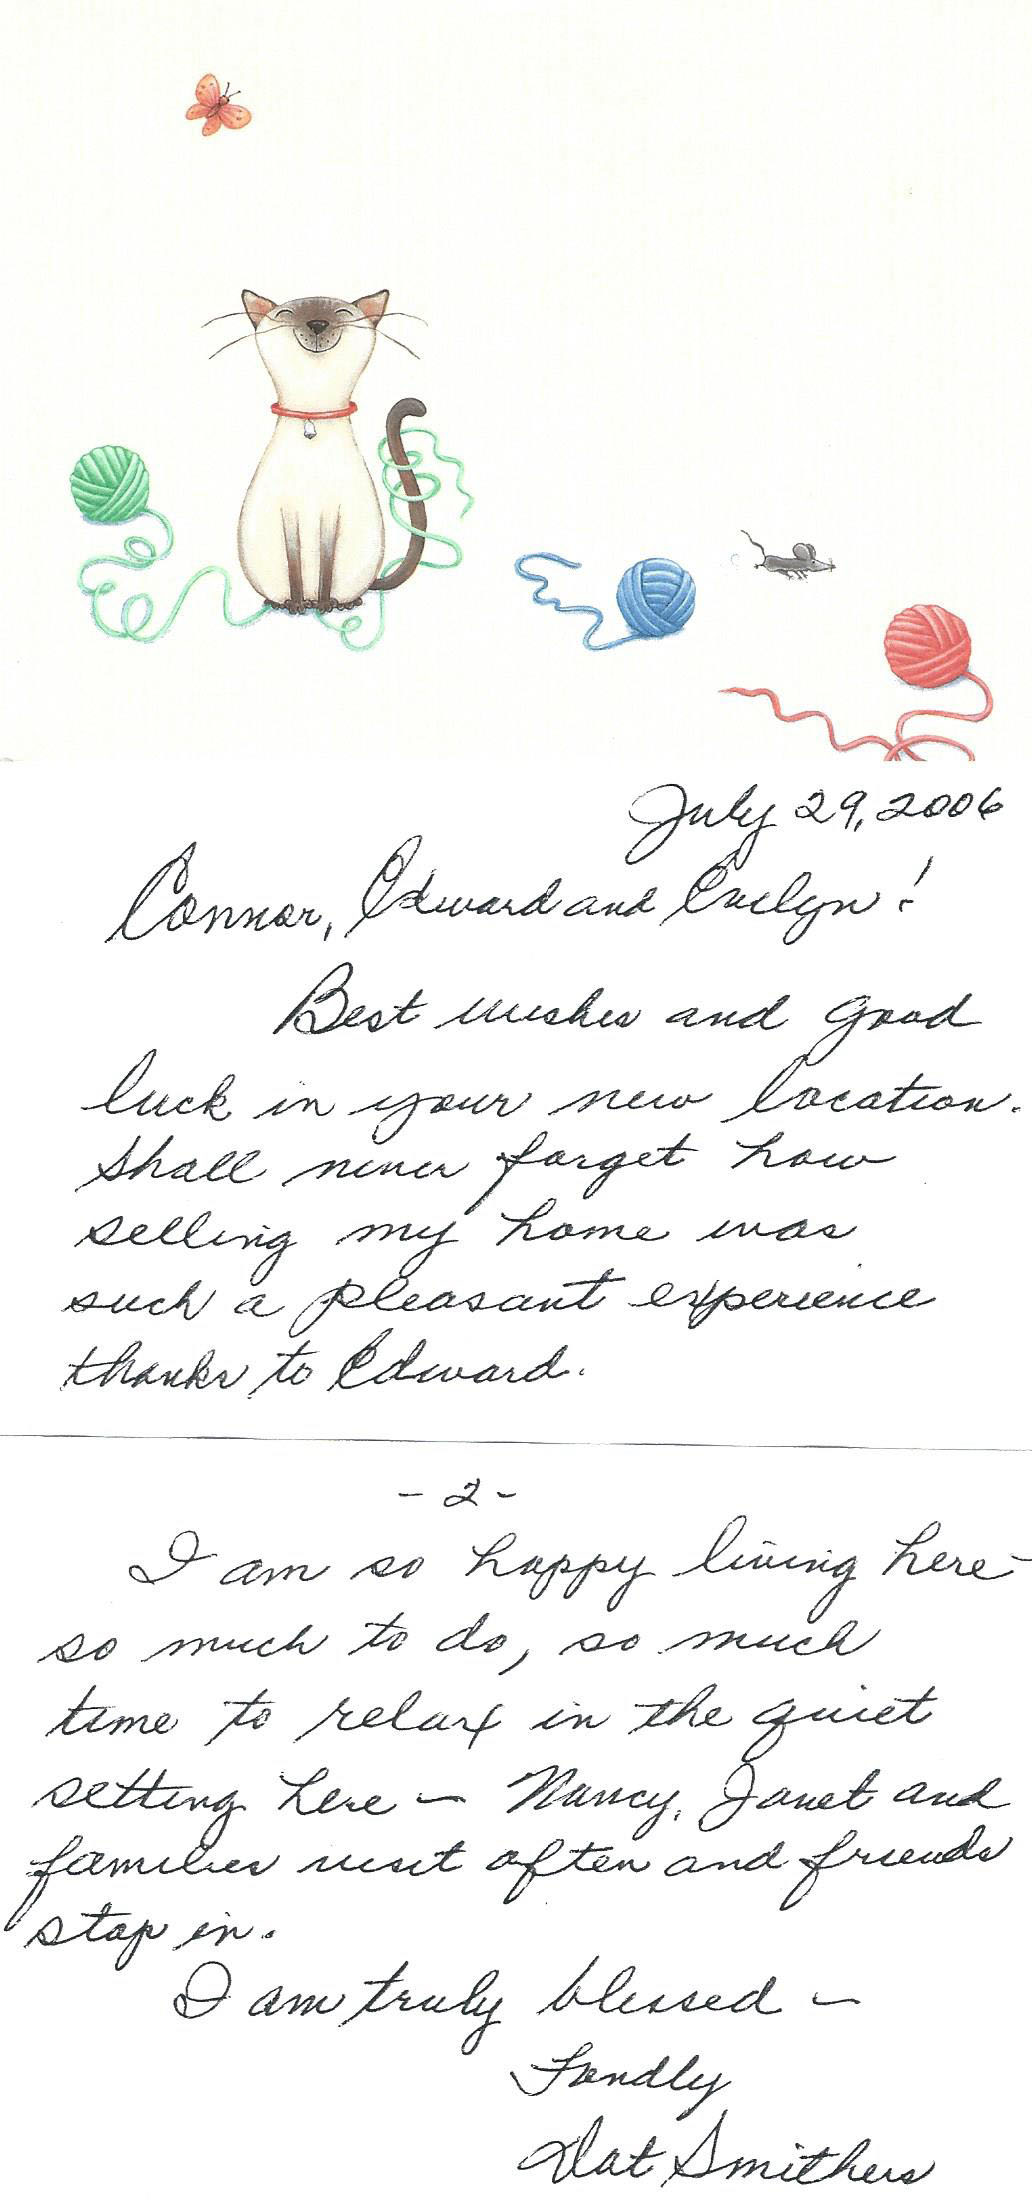 July 29, 2006
Connor, Edward and Evelyn!
Best wishes and good
luck in your new location.
Shall never forget how
selling my home was
such a pleasant experience
thanks to Edward.
- 2 -
I am so happy living here -
so much to do, so much
time to relax in the quiet
setting here - Nancy, Janet and
families visit often and friends
stop in.
I am truly blessed -
Fondly
Smithers